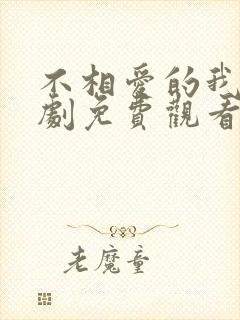 不相愛的我
劇免費觀看
老魔童